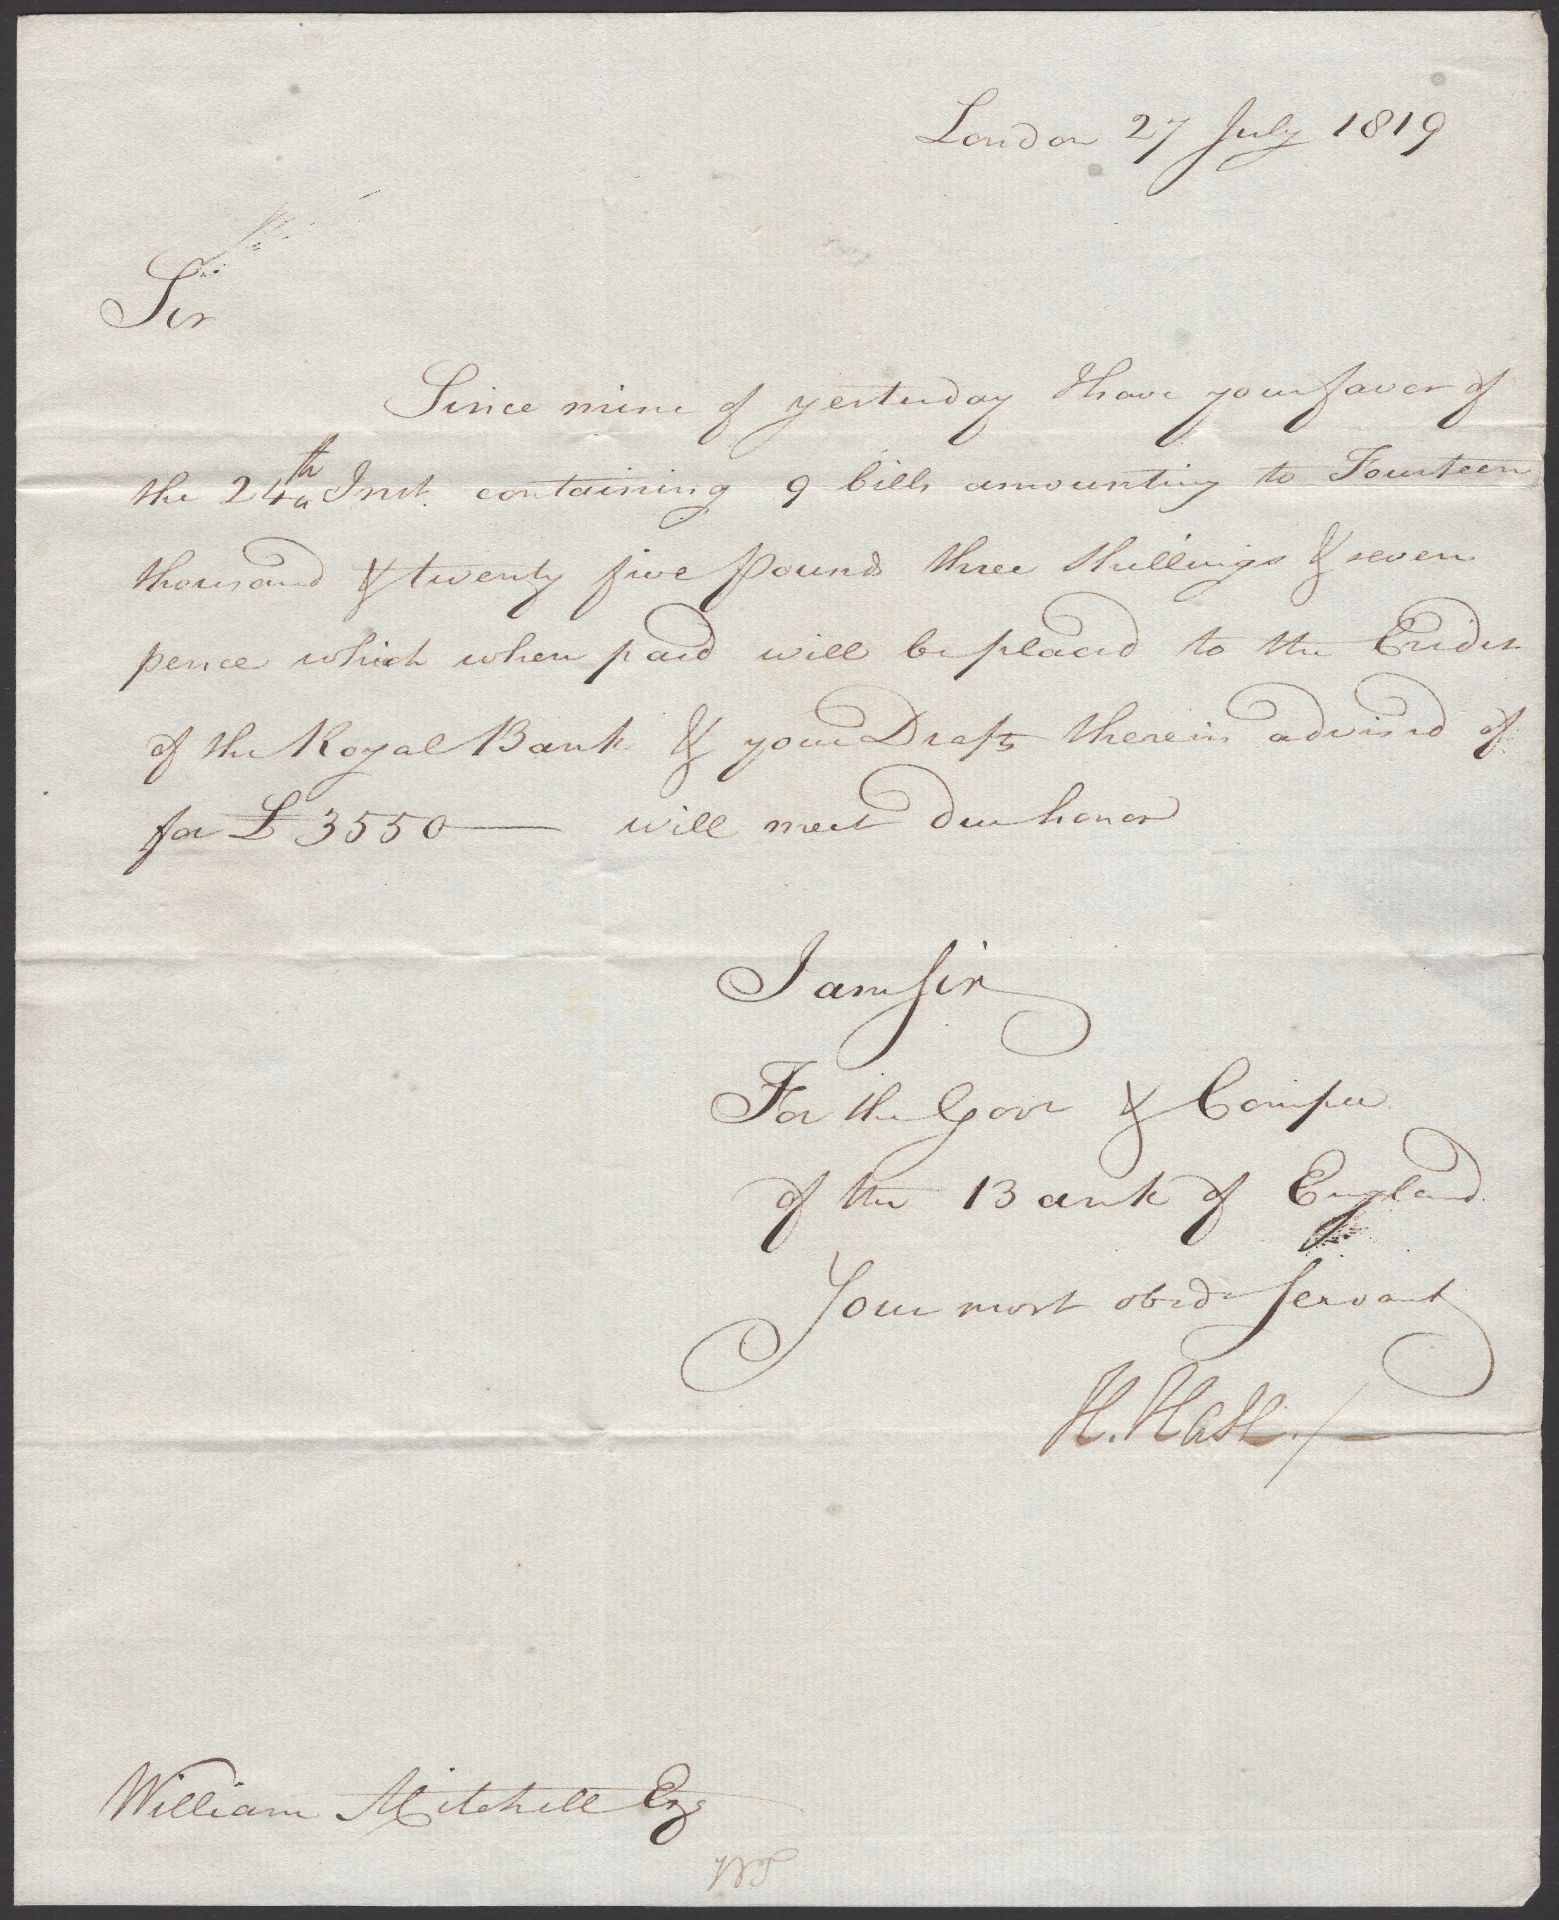 London 27 July 1819
Sir
Since mine of yesterday I have your favor of
the 24th Inst. containing 9 bills amounting to Fourteen
thousand & twenty five Pounds three Shillings & seven
pence which when paid will be placed to the Credit
of the Royal Bank & your Drafts therein advised of
for £3550 — will meet due honor
I am Sir
For the Govr & Compa
of the Bank of England
Your most obedt Servant
H. Hase
William Mitchell Esq